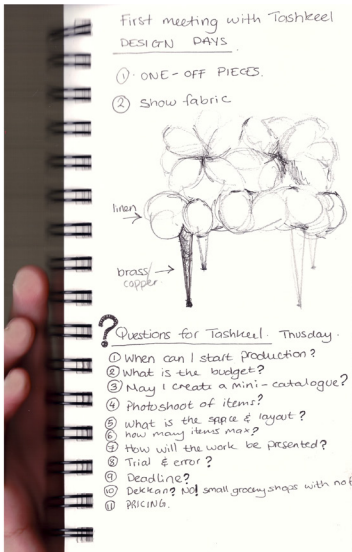 First meeting with Tashkeel
DESIGN DAYS.
① ONE-OFF PIECES.
② Show fabric
linen
brass/
copper
? Questions for Tashkeel. Thursday.
① When can I start production?
② What is the budget?
③ May I create a mini-catalogue?
④ Photoshoot of items?
⑤ What is the space & layout?
⑥ how many items max?
⑦ How will the work be presented?
⑧ Trial & error?
⑨ Deadline?
⑩ Dekkan? No! small grocery shops with
⑪ PRICING.